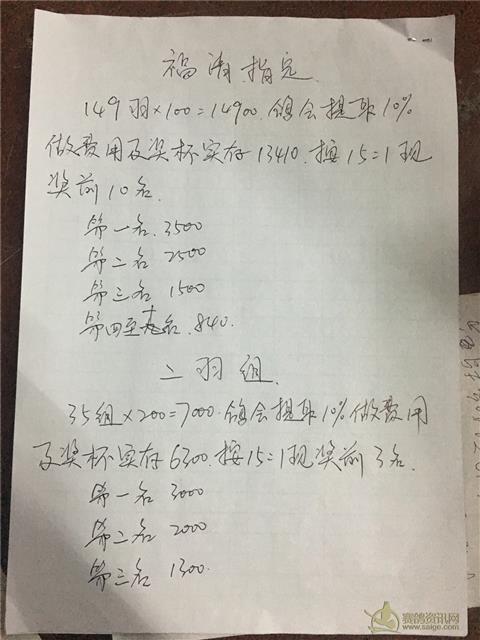 福清指定
149羽×100=14900.鸽会提取10%
做费用及奖杯实存13410.按15=1现
奖前10名.
第一名.3500
第二名 2500
第三名 1500
第四至 名.840.
二羽组.
35组×200=7000.鸽会提取10%做费用
及奖杯实存6300.按15=1现奖前3名.
第一名 3000
第二名 2000
第三名 1300.
赛鸽资讯网
www.saige.com